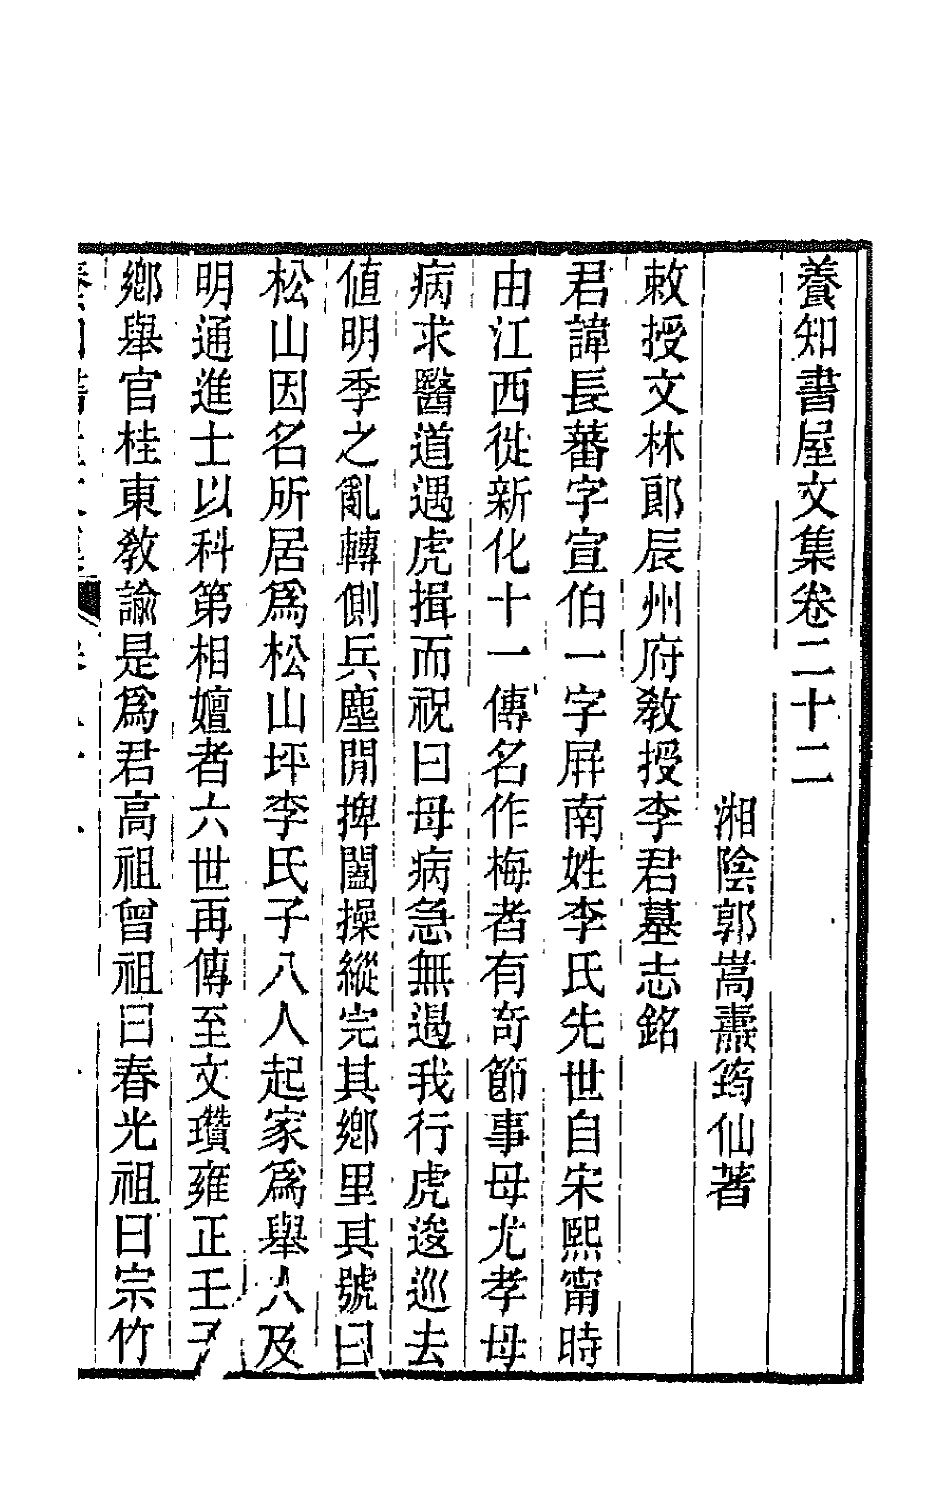 養知書屋文集卷二十二
湘陰郭嵩燾筠仙著
敕授文林郎辰州府教授李君墓志銘
君諱長蕃字宣伯一字屛南姓李氏先世自宋熙甯時
由江西徙新化十一傳名作梅者有奇節事母尤孝母
病求醫道遇虎揖而祝曰母病急無遏我行虎逡巡去
値明季之亂轉側兵塵閒捭闔操縱完其鄉里其號曰
松山因名所居爲松山坪李氏子八人起家爲舉人及
明通進士以科第相嬗者六世再傳至文瓚雍正壬子
鄉舉官桂東教諭是爲君高祖曾祖曰春光祖曰宗竹